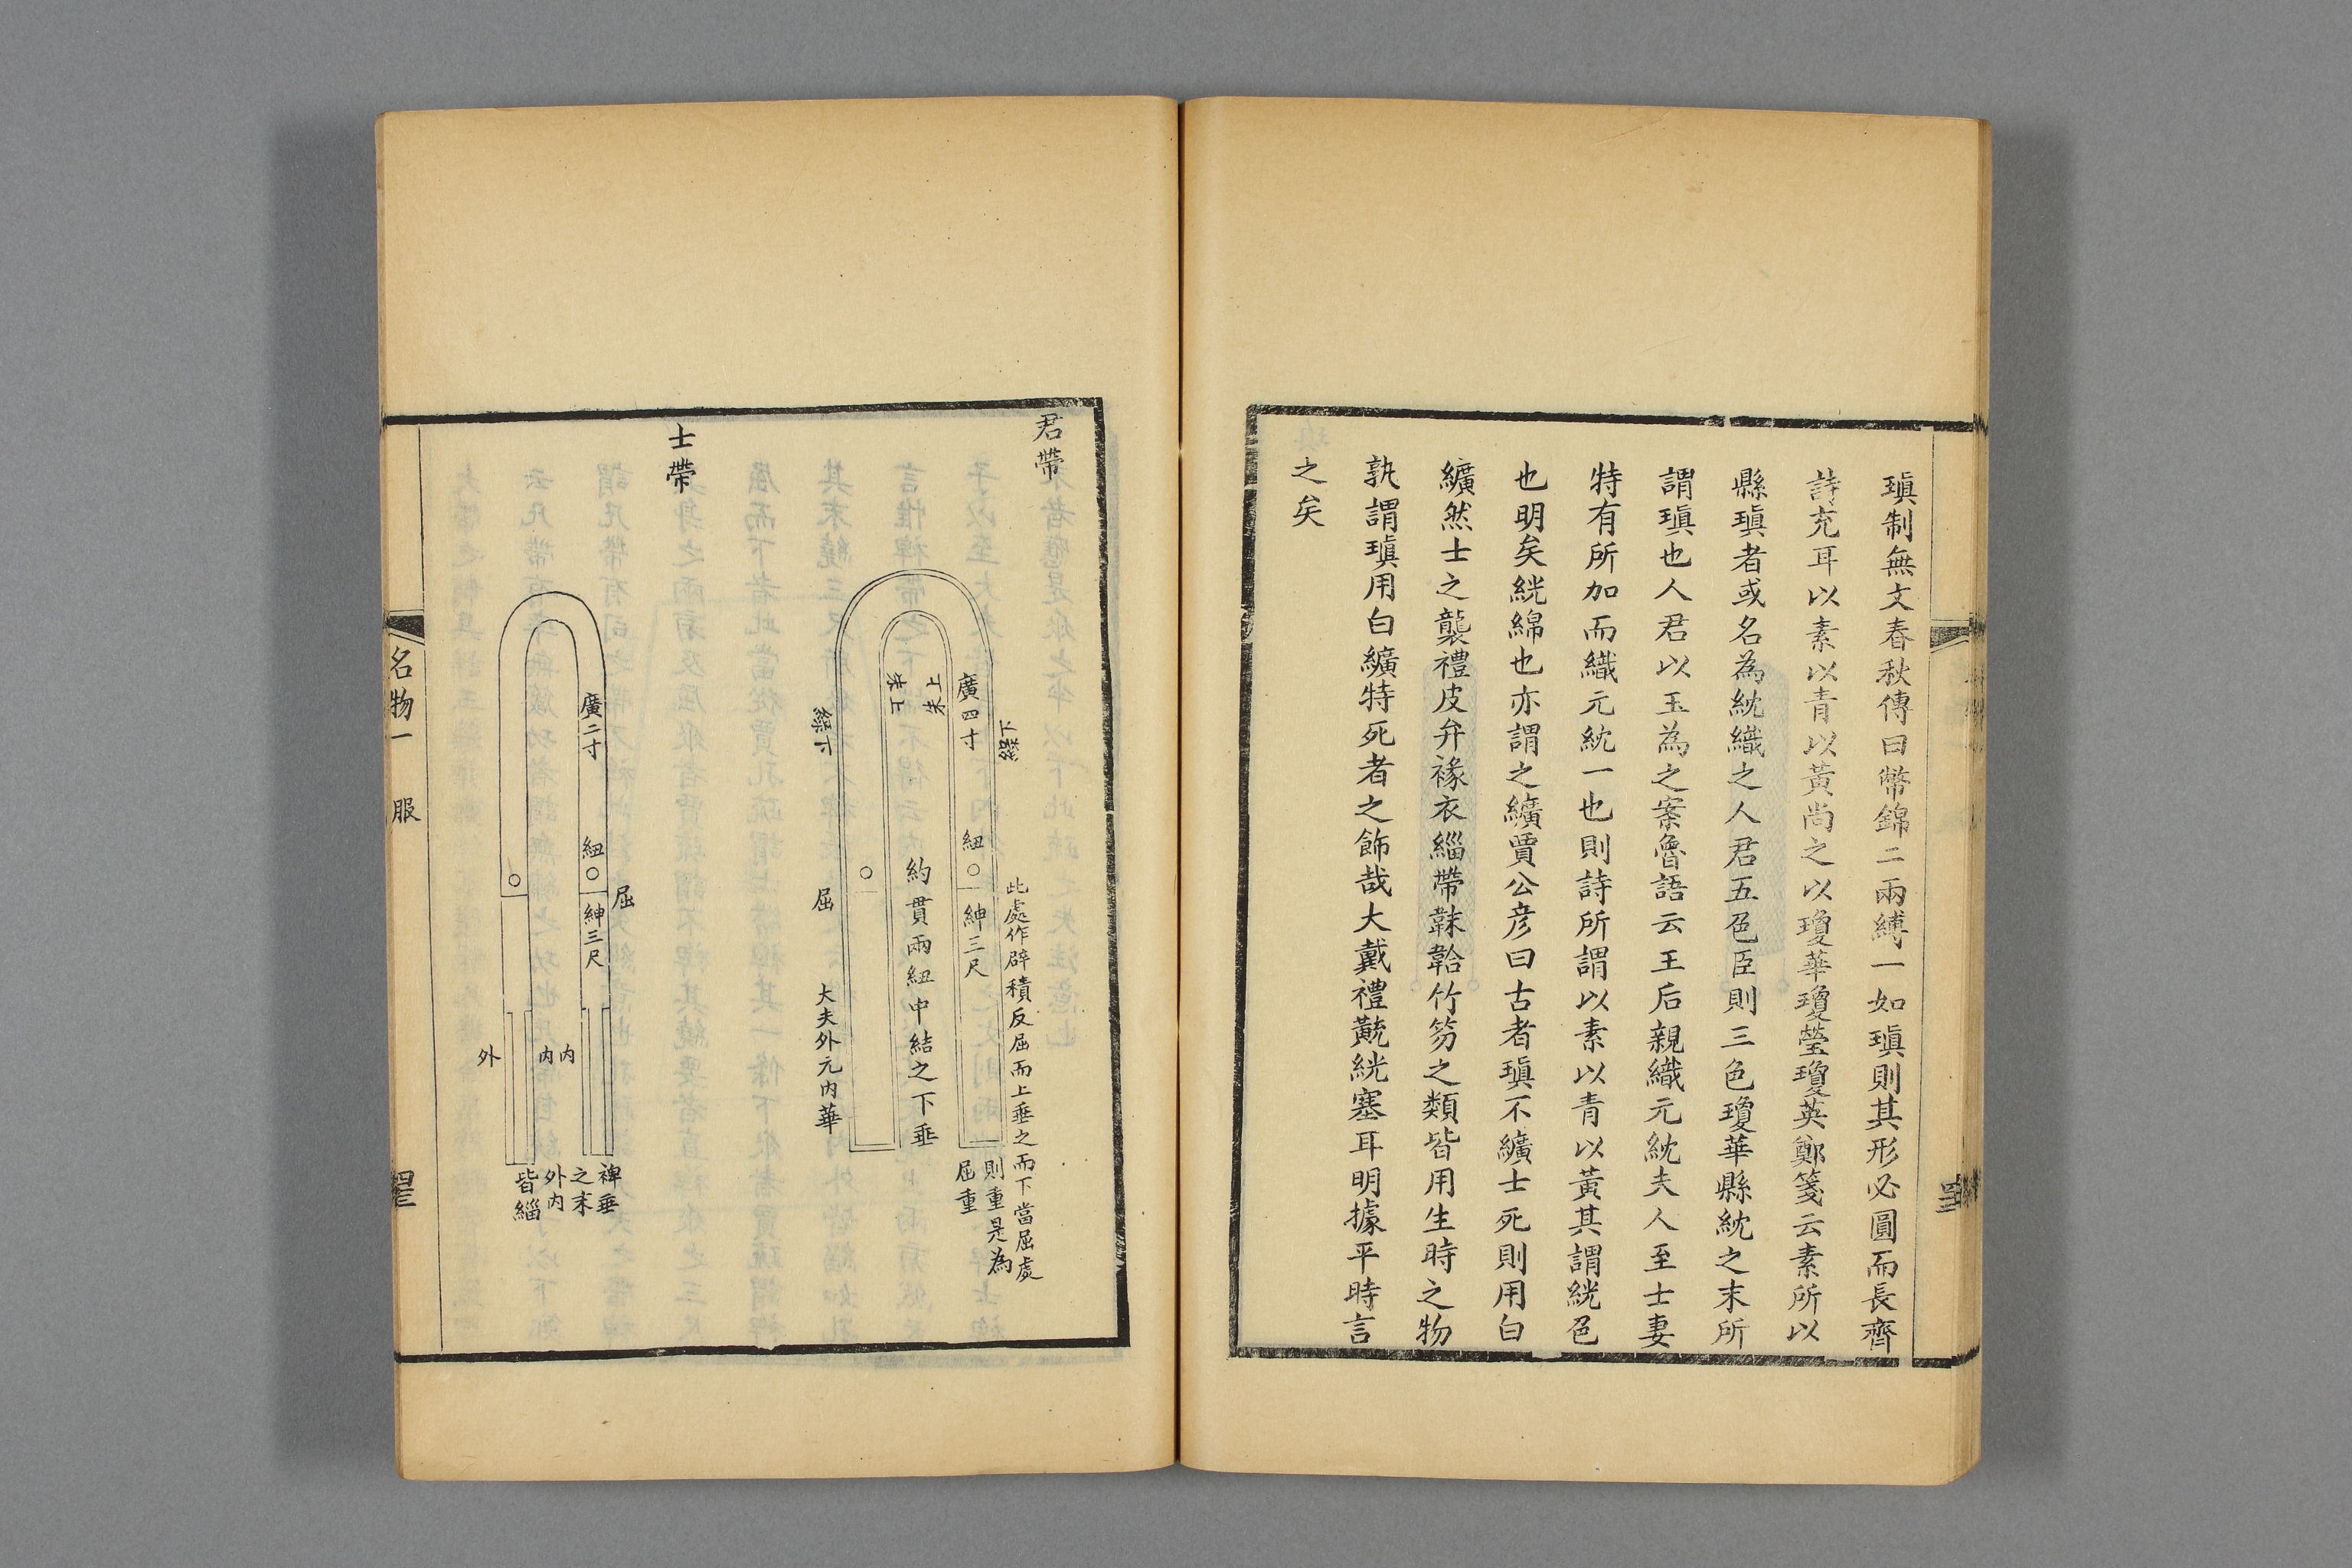 瑱制無文春秋傳曰幣錦二兩縳一如瑱則其形必圓而長齊
詩充耳以素以青以黃尚之以瓊華瓊瑩瓊英鄭箋云素所以
縣瑱者或名為紞織之人君五色臣則三色瓊華縣紞之末所
謂瑱也人君以玉為之案魯語云王后親織元紞夫人至士妻
特有所加而織元紞一也則詩所謂以素以青以黃其謂絖色
也明矣絖綿也亦謂之纊賈公彥曰古者瑱不纊士死則用白
纊然士之襲禮皮弁褖衣緇帶韎韐竹笏之類皆用生時之物
孰謂瑱用白纊特死者之飾哉大戴禮黈絖塞耳明據平時言
之矣
君帶
下緣
此處作辟積反屈而上垂之而下當屈處
則重是為
屈重
廣四寸
紐
紳三尺
上朱
上朱
約貫兩紐中結之下垂
下緣
屈
大夫外元內華
士帶
屈
廣二寸
紐
紳三尺
內
內
外
裨垂
之末
外內
皆緇
名物一
服